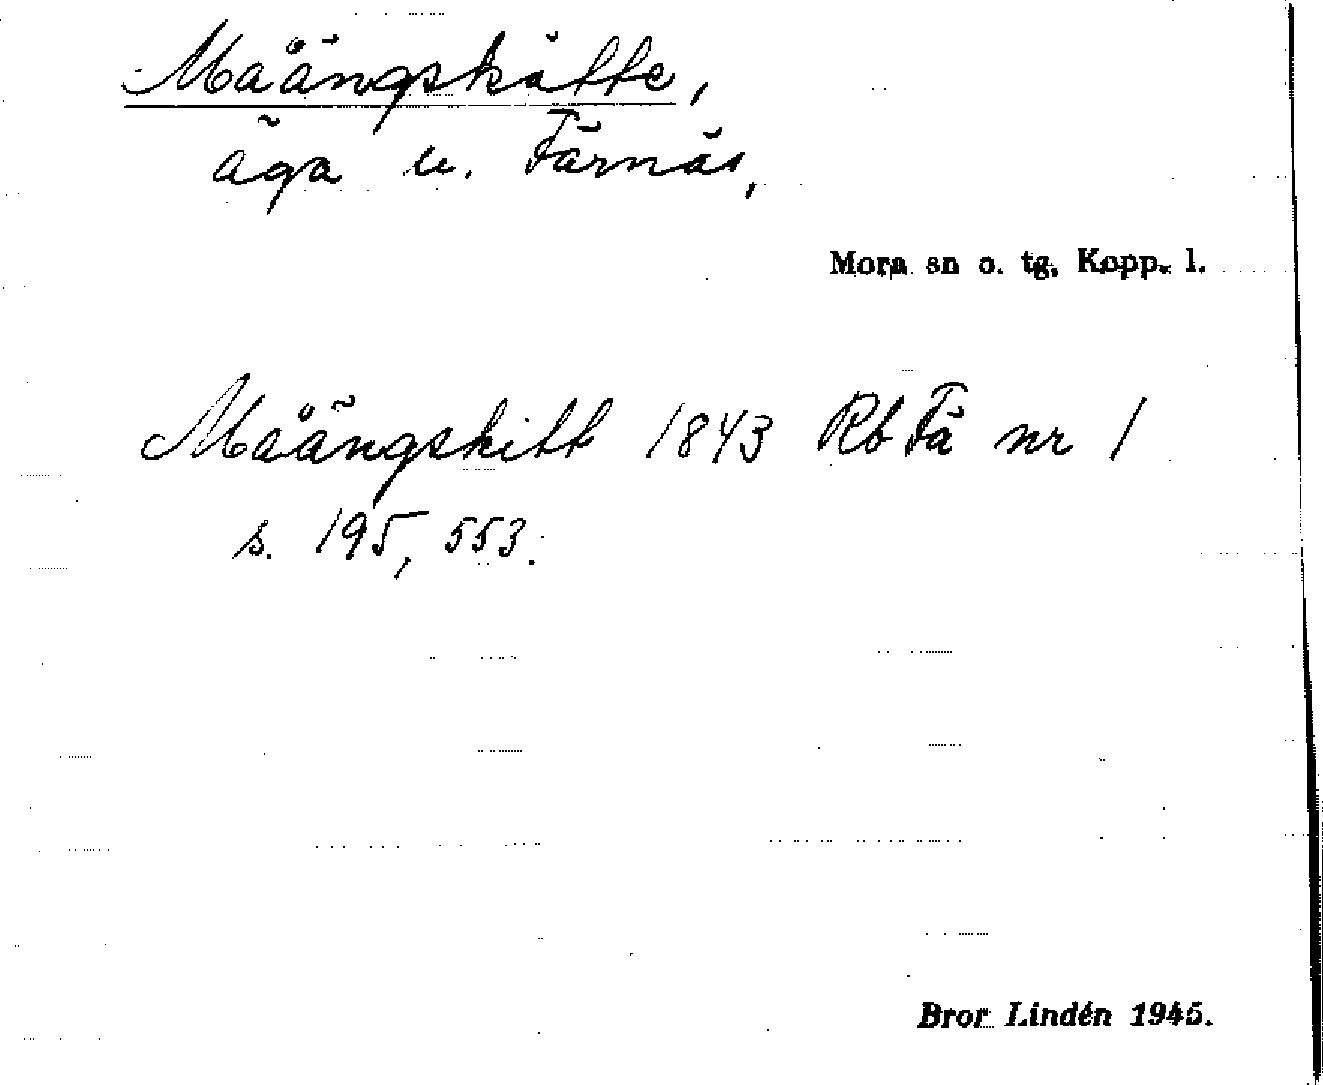 Måängskätte,
äga u. Färnäs,
Mora sn o. tg, Kopp. l.
Måängskitt 1843 Rb Fä nr 1
s. 195, 553.
Bror Lindén 1945.